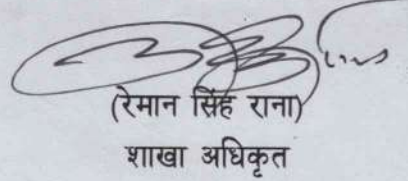 (रेमान सिंह राना)
शाखा अधिकृत